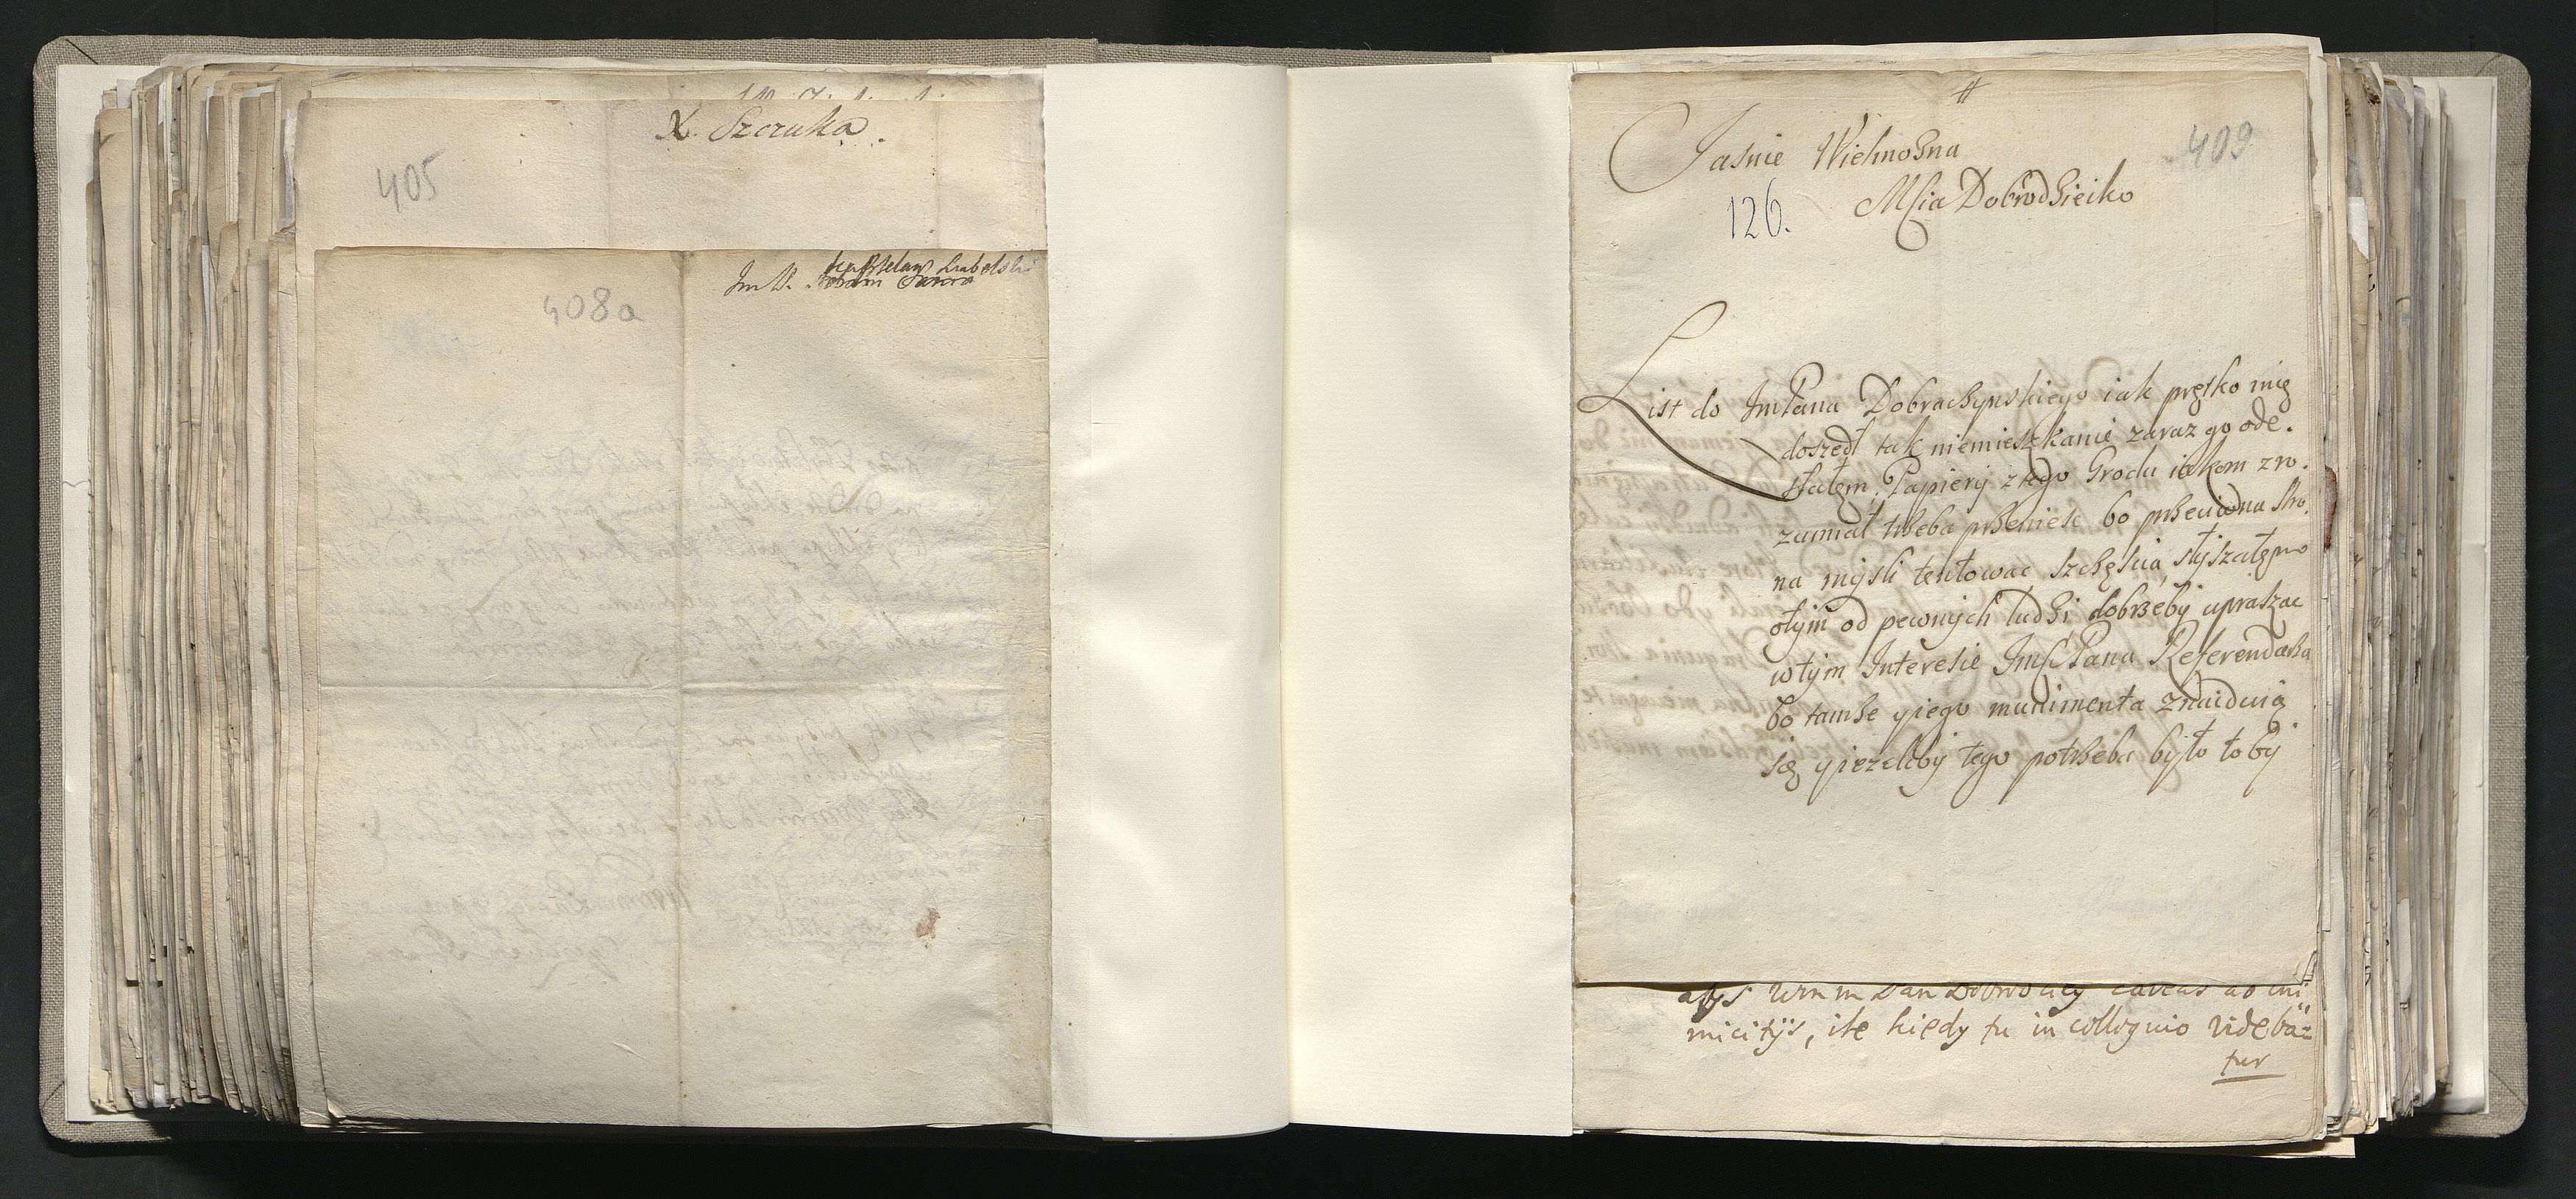 X. Szczuka.
405
408a
Jm P. Kasztelan Lubelski
#
Jasnie Wielmożna
409
126.
Mścia Dobrodzieiko
List do JmPana Dobraczynskiego iak pręsko mię
doszedł tak niemieszkanie zaraz go ode.
słałęm, Papiery z tego Grodu iakom zro.
zumiał trzeba przeniesc bo przeciwna stro.
na mysli tentowac szczęscia, słyszałęm o
otym od pewnych ludzi dobrzeby upraszac
wtym Interesie JmśćPana Referendarza
bo tamże yiego munimenta znaiduią
się yiezeliby tego potrzeba było toby
abys Wm m Pan Dobrodziey caveas ab ini
micitÿs, ile kiedy tu in colloquio videba=
tur